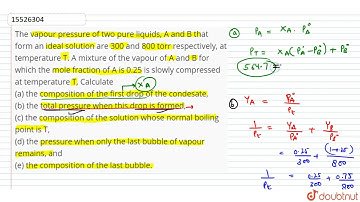 15526304
The vapour pressure of two pure liquids, A and B that
form an ideal solution are 300 and 800 torr respectively, at
temperature T. A mixture of the vapour of A and B for
which the mole fraction of A is 0.25 is slowly compressed
at temperature T, Calculate
(a) the composition of the first drop of the condesate.
(b) the total pressure when this drop is formed,
(c) the composition of the solution whose normal boiling
point is T,
(d) the pressure when only the last bubble of vapour
remains, and
(e) the composition of the last bubble.
XA
(a) PA = XA . PA°
PT = XA (PA° - PB°) + PB°
564.7 =
(b) YA = PA° / PT
1/PT = YA/PA° + YB/PB°
= 0.25/300 + (1-0.25)/800
1/PT = 0.25/300 + 0.75/800
doubtnut